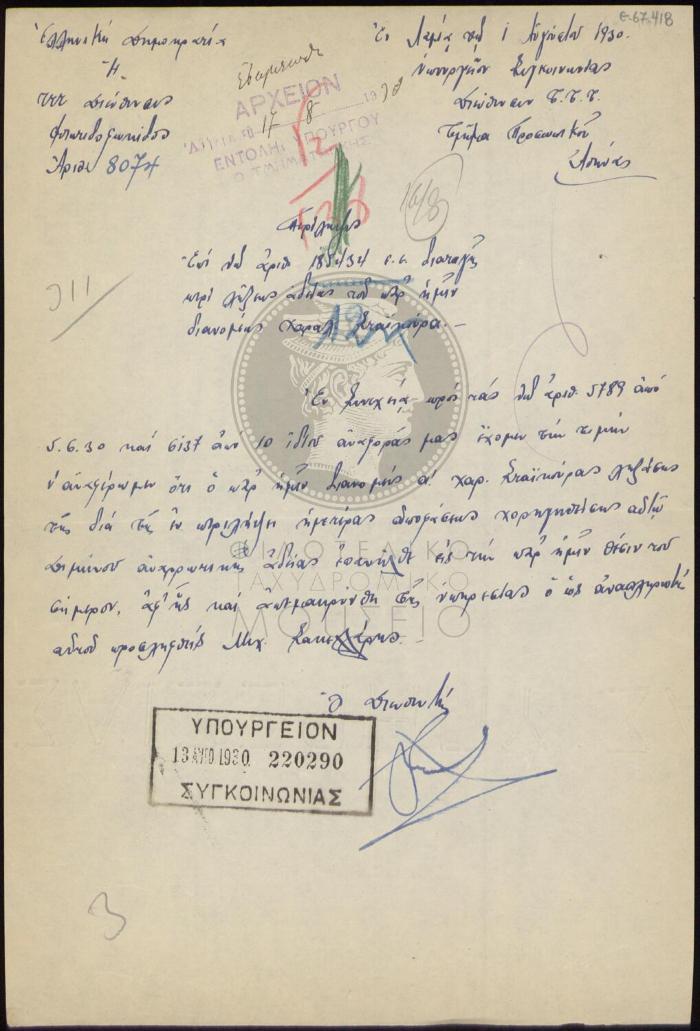 Ε-67.418
Ἑλληνικὴ Δημοκρατία
Ἡ
ΤΤΤ Διεύθυνσις
Φθιωτιδοφωκίδος
Ἀριθ 8074
Ἐν Λαμίᾳ τῇ 1 Αὐγούστου 1930.
Ὑπουργεῖον Συγκοινωνίας
Διεύθυνσιν Τ.Τ.Τ.
Τμῆμα Προσωπικοῦ
Ἀθήνας
ΑΡΧΕΙΟΝ
17-8 1930
ΕΝΤΟΛῌ ΥΠΟΥΡΓΟΥ
Ο ΤΜΗΜΑΤΑΡΧΗΣ
16/8
Περίληψις
Ἐπὶ τῆς ἀριθ. ἐ.ἔ. διαταγῆς
περὶ λήξεως ἀδείας τοῦ παρ' ἡμῖν
διανομέως Χαραλ. Σταϊκούρα.-
Ἐν συνεχείᾳ πρὸς τὰς ὑπ' ἀριθ. 5789 ἀπὸ
5.6.30 καὶ 6137 ἀπὸ 10 ἰδίου ἀναφοράς μας ἔχομεν τὴν τιμὴν
ν' ἀναφέρωμεν ὅτι ὁ παρ' ἡμῖν διανομεὺς α' Χαρ. Σταϊκούρας ληξάσης
τῆς διὰ τῆς ἐν περιλήψει ἡμετέρας ἀποφάσεως χορηγηθείσης αὐτῷ
διμήνου ἀναρρωτικῆς ἀδείας ἐπανῆλθε εἰς τὴν παρ' ἡμῖν θέσιν του
σήμερον, ἀφ' ἧς καὶ ἀπεμακρύνθη τῆς ὑπηρεσίας ὁ ὡς ἀναπληρωτὴς
αὐτοῦ προσληφθεὶς Μιχ.
Ὁ Διευθυντής
ΦΙΛΟΤΕΛΙΚΟ
ΤΑΧΥΔΡΟΜΙΚΟ
ΜΟΥΣΕΙΟ
ΥΠΟΥΡΓΕΙΟΝ
13 ΑΥΓΟ 1930. 220290
ΣΥΓΚΟΙΝΩΝΙΑΣ
3